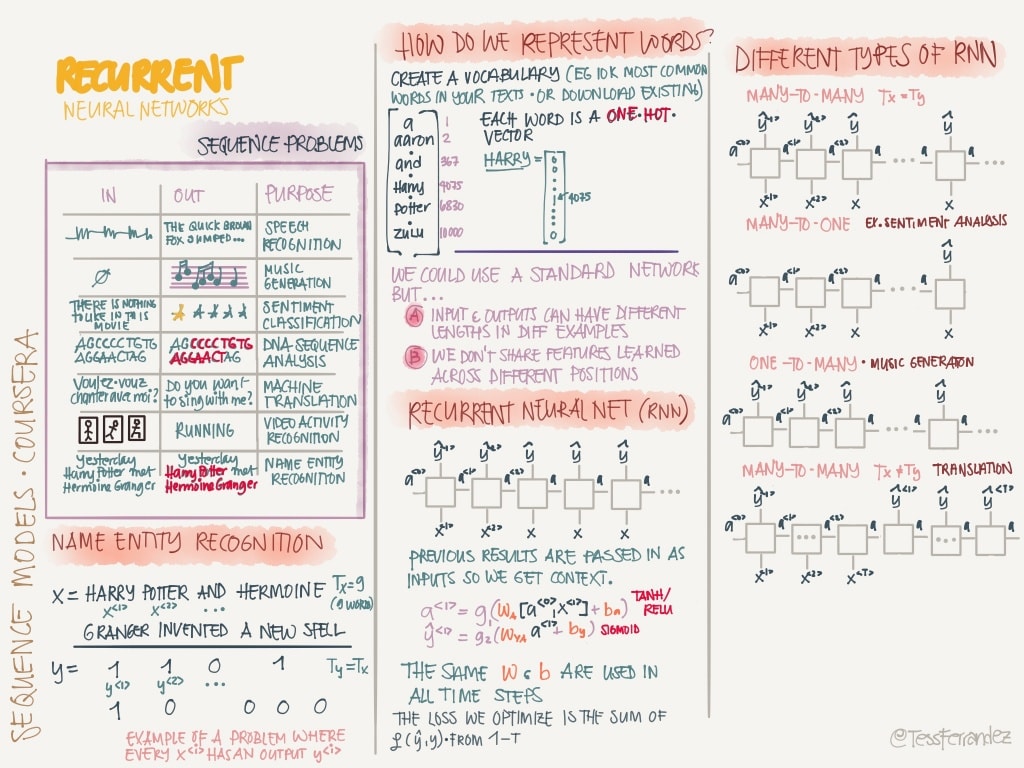 RECURRENT
NEURAL NETWORKS
SEQUENCE PROBLEMS
IN OUT PURPOSE
THE QUICK BROWN
FOX JUMPED...
SPEECH
RECOGNITION
∅
MUSIC
GENERATION
THERE IS NOTHING
TO LIKE IN THIS
MOVIE
SENTIMENT
CLASSIFICATION
AGCCCCTGTG
AGGAACTAG
AGCCCCTGTG
AGGAACTAG
DNA SEQUENCE
ANALYSIS
Voulez-vouz
chanter avec moi?
Do you want
to sing with me?
MACHINE
TRANSLATION
RUNNING
VIDEO ACTIVITY
RECOGNITION
Yesterday
Harry Potter met
Hermoine Granger
Yesterday
Harry Potter met
Hermoine Granger
NAME ENTITY
RECOGNITION
SEQUENCE MODELS · COURSERA
NAME ENTITY RECOGNITION
X = HARRY POTTER AND HERMOINE Tx=9
x<1> x<2> ... (9 WORDS)
GRANGER INVENTED A NEW SPELL
y = 1 1 0 1 Ty=Tx
y<1> y<2> ...
1 0 0 0 0
EXAMPLE OF A PROBLEM WHERE
EVERY X<i> HAS AN OUTPUT y<i>
HOW DO WE REPRESENT WORDS?
CREATE A VOCABULARY (EG 10K MOST COMMON
WORDS IN YOUR TEXTS · OR DOWNLOAD EXISTING)
a 1
aaron 2
and 367
Harry 4075
Potter 6830
zulu 10000
EACH WORD IS A ONE·HOT·
VECTOR
HARRY =
0
0
1
0
4075
WE COULD USE A STANDARD NETWORK
BUT...
A INPUT & OUTPUTS CAN HAVE DIFFERENT
LENGTHS IN DIFF EXAMPLES
B WE DON'T SHARE FEATURES LEARNED
ACROSS DIFFERENT POSITIONS
RECURRENT NEURAL NET (RNN)
ŷ<1> ŷ<2> ŷ ŷ ŷ
a<0> a<1> a<2> a a a ...
x<1> x<2> x x x
PREVIOUS RESULTS ARE PASSED IN AS
INPUTS SO WE GET CONTEXT.
a<1> = g1(WA[a<0>,x<1>]+ba) TANH/
RELU
ŷ<1> = g2(WYA a<1>+by) SIGMOID
THE SAME W & b ARE USED IN
ALL TIME STEPS
THE LOSS WE OPTIMIZE IS THE SUM OF
ℒ(ŷ,y)·FROM 1-T
DIFFERENT TYPES OF RNN
MANY-TO-MANY Tx=Ty
ŷ<1> ŷ<2> ŷ ŷ
a<0> a<1> a<2> a ... a a ...
x<1> x<2> x x
MANY-TO-ONE EX. SENTIMENT ANALYSIS
ŷ
a<0> a<1> a<2> a ... a
x<1> x<2> x x
ONE-TO-MANY · MUSIC GENERATION
ŷ<1> ŷ<2> ŷ ŷ
a<0> a<1> a<2> a ... a a ...
MANY-TO-MANY Tx≠Ty TRANSLATION
ŷ<1> ŷ<1> ŷ ŷ<T>
a<0> a<1> ... a<2> a a ... a a
x<1> x<2> x<T>
@TessFerrandez